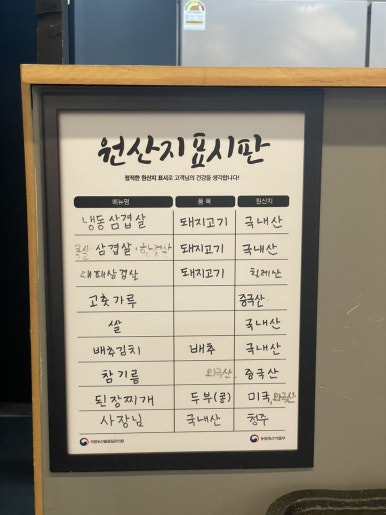 원산지표시판
정직한 원산지 표시로 고객님의 건강을 생각합니다!
메뉴명 품 목 원산지
냉동삼겹살 돼지고기 국내산
삼겹살 돼지고기 국내산
대패삼겹살 돼지고기 칠레산
고춧가루 중국산
쌀 국내산
배추김치 배추 국내산
참기름 외국산, 중국산
된장찌개 두부(콩) 미국, 외국산
사장님 국내산 청주
국립농산물품질관리원 농림축산식품부